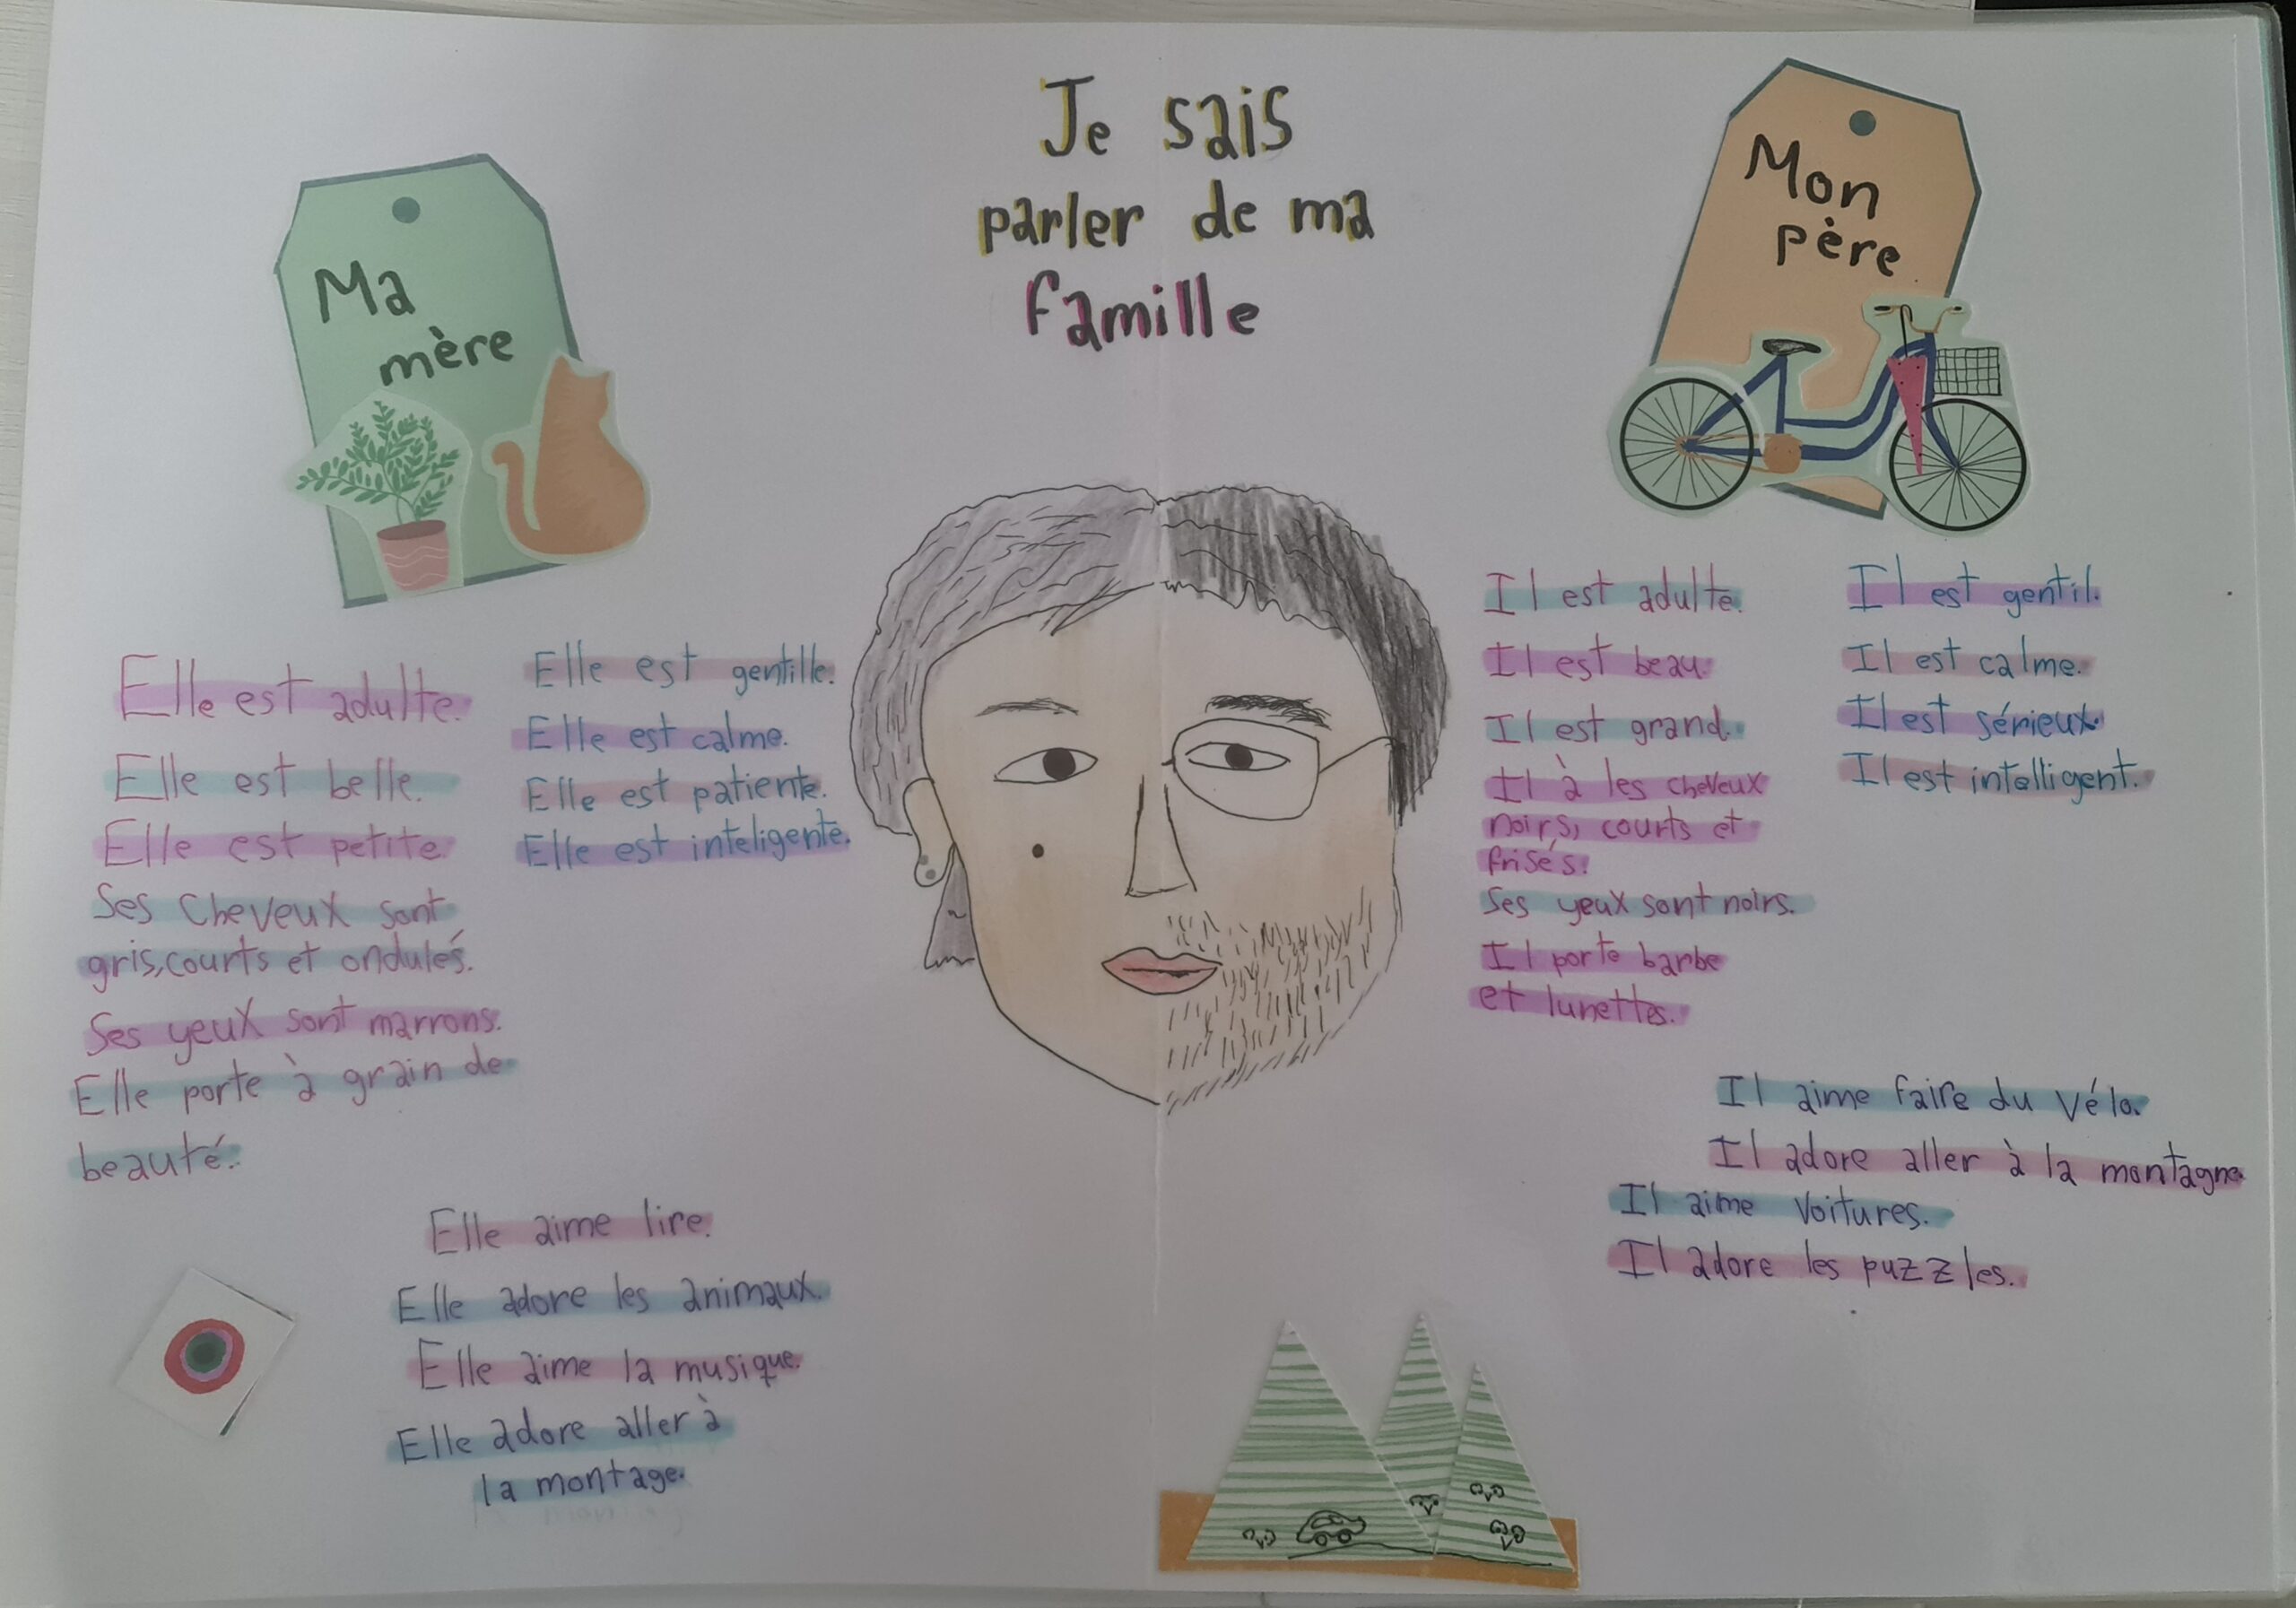 Je sais
parler de ma
famille
Ma
mère
Elle est adulte.
Elle est belle.
Elle est petite.
Ses cheveux sont
gris, courts et ondulés.
Ses yeux sont marrons.
Elle porte à grain de
beauté.
Elle est gentille.
Elle est calme.
Elle est patiente.
Elle est inteligente.
Elle aime lire.
Elle adore les animaux.
Elle aime la musique.
Elle adore aller à
la montage.
Mon
père
Il est adulte.
Il est beau.
Il est grand.
Il à les cheveux
noirs, courts et
frisés.
Ses yeux sont noirs.
Il porte barbe
et lunettes.
Il est gentil.
Il est calme.
Il est sérieux.
Il est intelligent.
Il aime faire du vélo.
Il adore aller à la montagne
Il aime voitures.
Il adore les puzzles.